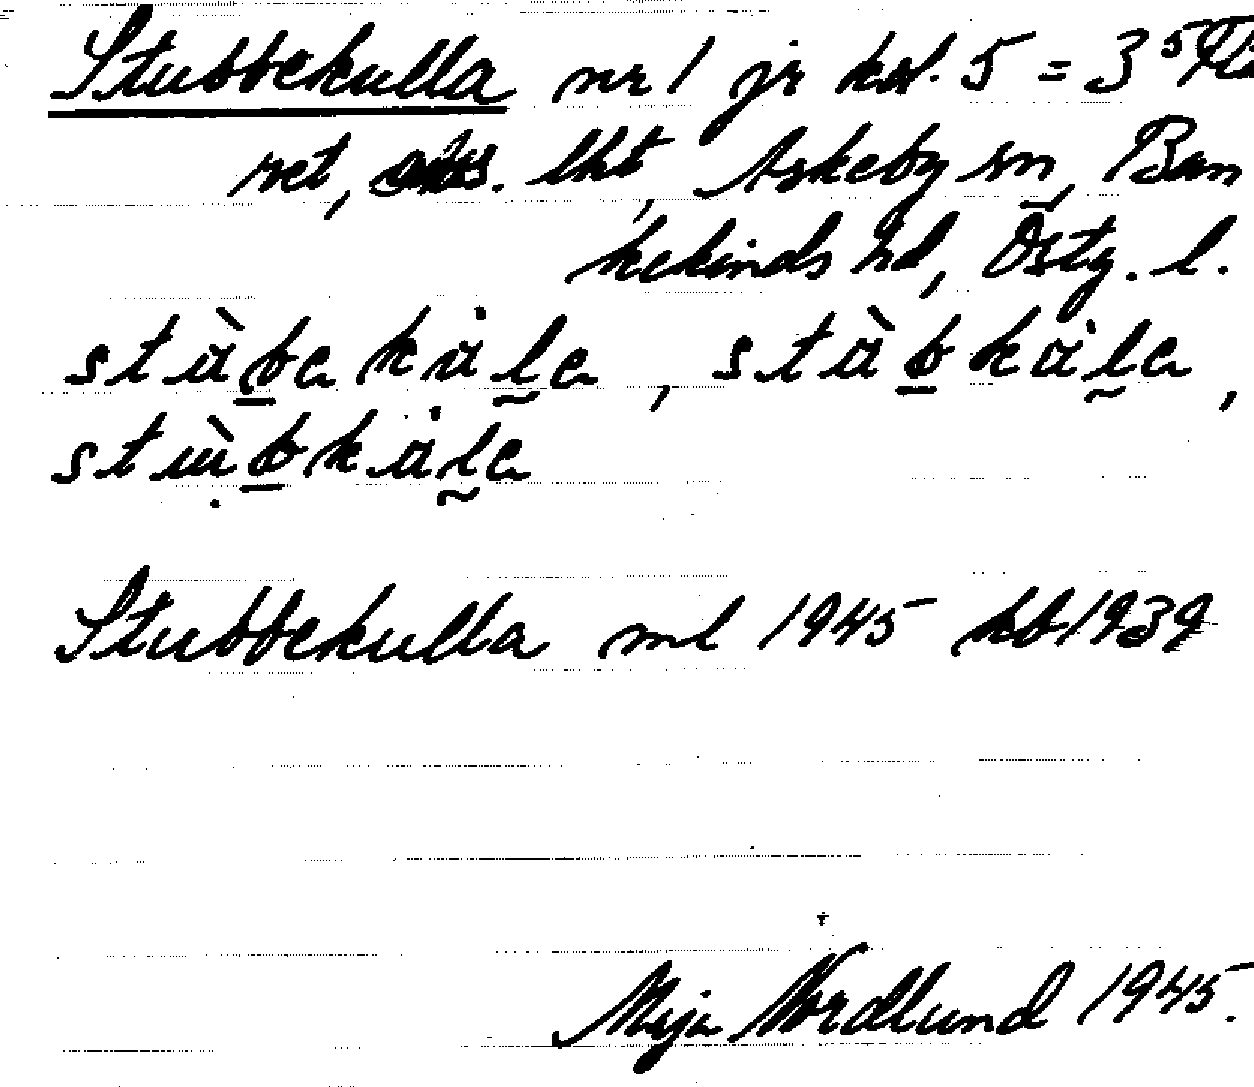 Stubbekulla nr 1 jr kbl. 5 = 3
ret, lht, Askeby sn, Ban
kekinds hd, Östg. l.
stàbe kȧle, stàbkȧle,
stụ̀bkȧle
Stubbekulla ml 1945 kb 1939
Maja Nordlund 1945.